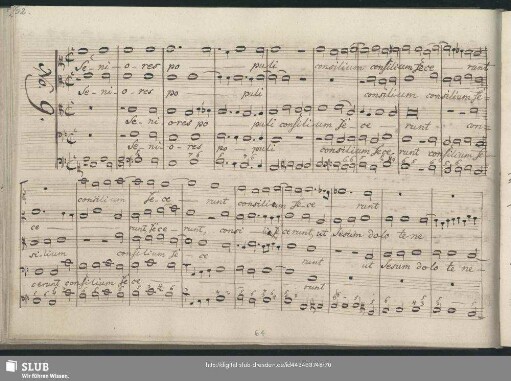 No. 9.
Se - ni - o - res po puli consilium consilium fece runt
Se - ni - o - res po puli consilium consilium fe -
Se - ni - o - res po puli consilium fe - ce runt con -
Se ni - o - res po puli consilium fecerunt consilium fe
consilium fe - ce runt consilium fe - ce runt
ce runt fece - runt, consi fecerunt, ut Jesum dolo te - ne -
silium consilium fe ce runt ut Jesum dolo te ne -
cerunt consilium fe ce runt
64
SLUB
Wir führen Wissen.